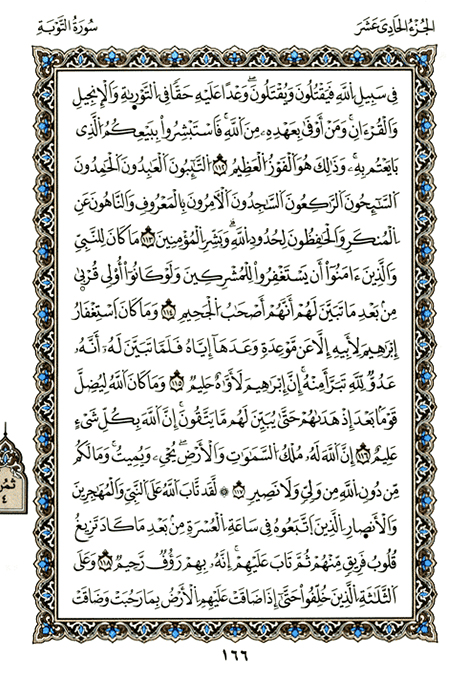 الجُزْءُ الحَادِى عَشَرَ
سُورَةُ التَّوْبَةِ
فِي سَبِيلِ اللَّهِ فَيَقْتُلُونَ وَيُقْتَلُونَۖ وَعْدًا عَلَيْهِ حَقًّا فِي التَّوْرَىٰةِ وَالْإِنجِيلِ
وَالْقُرْءَانِۚ وَمَنْ أَوْفَىٰ بِعَهْدِهِۦ مِنَ اللَّهِۚ فَاسْتَبْشِرُوا بِبَيْعِكُمُ الَّذِى
بَايَعْتُم بِهِۦۚ وَذَٰلِكَ هُوَ الْفَوْزُ الْعَظِيمُ ١١٢ التَّٰٓئِبُونَ الْعَٰبِدُونَ الْحَٰمِدُونَ
السَّٰٓئِحُونَ الرَّٰكِعُونَ السَّٰجِدُونَ الْأٓمِرُونَ بِالْمَعْرُوفِ وَالنَّاهُونَ عَنِ
الْمُنكَرِ وَالْحَٰفِظُونَ لِحُدُودِ اللَّهِۗ وَبَشِّرِ الْمُؤْمِنِينَ ١١٣ مَا كَانَ لِلنَّبِيِّ
وَالَّذِينَ ءَامَنُوٓا أَن يَسْتَغْفِرُوا لِلْمُشْرِكِينَ وَلَوْ كَانُوٓا أُولِى قُرْبَىٰ
مِنۢ بَعْدِ مَا تَبَيَّنَ لَهُمْ أَنَّهُمْ أَصْحَٰبُ الْجَحِيمِ ١١٤ وَمَا كَانَ اسْتِغْفَارُ
إِبْرَٰهِيمَ لِأَبِيهِ إِلَّا عَن مَّوْعِدَةٍ وَعَدَهَآ إِيَّاهُ فَلَمَّا تَبَيَّنَ لَهُۥٓ أَنَّهُۥ
عَدُوٌّ لِّلَّهِ تَبَرَّأَ مِنْهُۚ إِنَّ إِبْرَٰهِيمَ لَأَوَّٰهٌ حَلِيمٌ ١١٥ وَمَا كَانَ اللَّهُ لِيُضِلَّ
قَوْمًۢا بَعْدَ إِذْ هَدَىٰهُمْ حَتَّىٰ يُبَيِّنَ لَهُم مَّا يَتَّقُونَۚ إِنَّ اللَّهَ بِكُلِّ شَىْءٍ
عَلِيمٌ ١١٦ إِنَّ اللَّهَ لَهُۥ مُلْكُ السَّمَٰوَٰتِ وَالْأَرْضِۖ يُحْىِۦ وَيُمِيتُۚ وَمَا لَكُم
مِّن دُونِ اللَّهِ مِن وَلِىٍّ وَلَا نَصِيرٍ ١١٧ ۞ لَّقَد تَّابَ اللَّهُ عَلَى النَّبِىِّ وَالْمُهَٰجِرِينَ
وَالْأَنصَارِ الَّذِينَ اتَّبَعُوهُ فِى سَاعَةِ الْعُسْرَةِ مِنۢ بَعْدِ مَا كَادَ تَزِيغُ
قُلُوبُ فَرِيقٍ مِّنْهُمْ ثُمَّ تَابَ عَلَيْهِمْۚ إِنَّهُۥ بِهِمْ رَؤُفٌ رَّحِيمٌ ١١٨ وَعَلَى
الثَّلَٰثَةِ الَّذِينَ خُلِّفُوا حَتَّىٰٓ إِذَا ضَاقَتْ عَلَيْهِمِ الْأَرْضُ بِمَا رَحُبَتْ وَضَاقَتْ
ثُمُن
٤
١٦٦